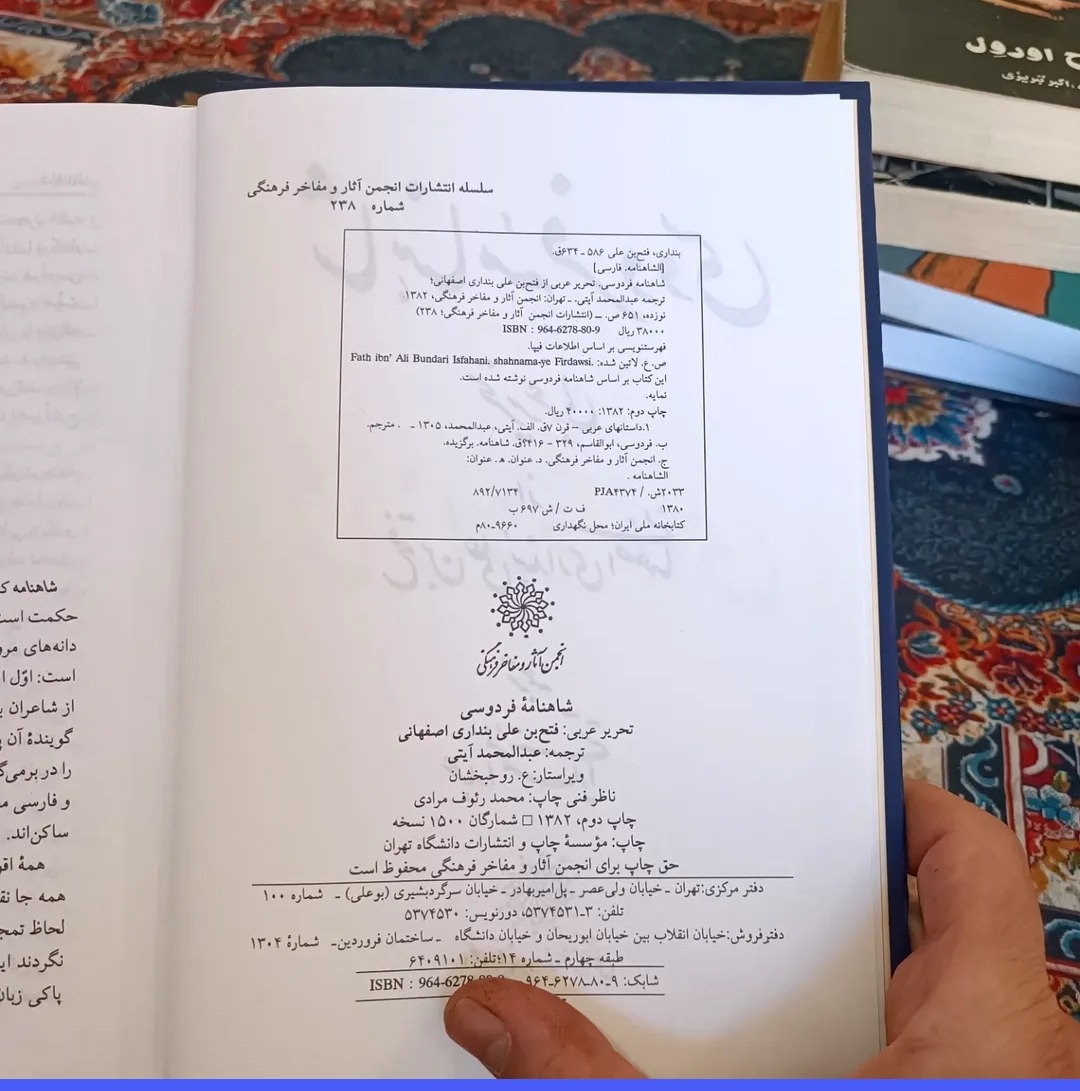 سلسله انتشارات انجمن آثار و مفاخر فرهنگی
شماره ۲۳۸
بنداری، فتح‌بن علی ۵۸۶ ـ ۶۳۴ق.
[الشاهنامه. فارسی]
شاهنامه فردوسی. تحریر عربی از فتح‌بن علی بنداری اصفهانی؛
ترجمه عبدالمحمد آیتی. ـ تهران: انجمن آثار و مفاخر فرهنگی، ۱۳۸۲.
نوزده، ۶۵۱ ص. ــ (انتشارات انجمن آثار و مفاخر فرهنگی؛ ۲۳۸)
۳۸۰۰۰ ریال ISBN : 964-6278-80-9
فهرستنویسی بر اساس اطلاعات فیپا.
ص. ع. لاتین شده: Fath ibn' Ali Bundari Isfahani. shahnama-ye Firdawsi.
این کتاب بر اساس شاهنامه فردوسی نوشته شده است.
نمایه.
چاپ دوم: ۱۳۸۲: ۴۰۰۰۰ ریال.
۱.داستانهای عربی -- قرن ۷ق. الف. آیتی، عبدالمحمد، ۱۳۰۵ ـ . مترجم.
ب. فردوسی، ابوالقاسم، ۳۲۹ - ۴۱۶؟ق. شاهنامه. برگزیده.
ج. انجمن آثار و مفاخر فرهنگی. د. عنوان. ه. عنوان:
الشاهنامه .
۲۰۳۳ش. / PJA۴۳۷۴ ۸۹۲/۷۱۳۴
۱۳۸۰ ف ت / ش ۶۹۷ ب
کتابخانه ملی ایران؛ محل نگهداری ۹۶۶۰ـ۸۰م
انجمن آثار و مفاخر فرهنگی
شاهنامهٔ فردوسی
تحریر عربی: فتح‌بن علی بنداری اصفهانی
ترجمه: عبدالمحمد آیتی
ویراستار: ع. روحبخشان
ناظر فنی چاپ: محمد رئوف مرادی
چاپ دوم، ۱۳۸۲ □ شمارگان ۱۵۰۰ نسخه
چاپ: مؤسسهٔ چاپ و انتشارات دانشگاه تهران
حق چاپ برای انجمن آثار و مفاخر فرهنگی محفوظ است
دفتر مرکزی:تهران ـ خیابان ولی‌عصر ـ پل‌امیربهادر ـ خیابان سرگردبشیری (بوعلی) ـ شماره ۱۰۰
تلفن: ۳ـ۵۳۷۴۵۳۱، دورنویس: ۵۳۷۴۵۳۰
دفترفروش:خیابان انقلاب بین خیابان ابوریحان و خیابان دانشگاه ـ ساختمان فروردین ـ شمارهٔ ۱۳۰۴
طبقه چهارم ـ شماره ۱۴؛تلفن: ۶۴۰۹۱۰۱
شابک: ۹ـ۸۰ـ۶۲۷۸ـ۹۶۴ ISBN : 964-6278-80-9
شاهنامه ک
حکمت است
دانه‌های مرو
است: اوّل ا
از شاعران ب
گویندهٔ آن
را در برمی‌گ
و فارسی م
ساکن‌اند.
همهٔ اقو
همه جا نق
لحاظ تمج
نگردند ای
پاکی زبان
ح اورول
اکبر تبریزی